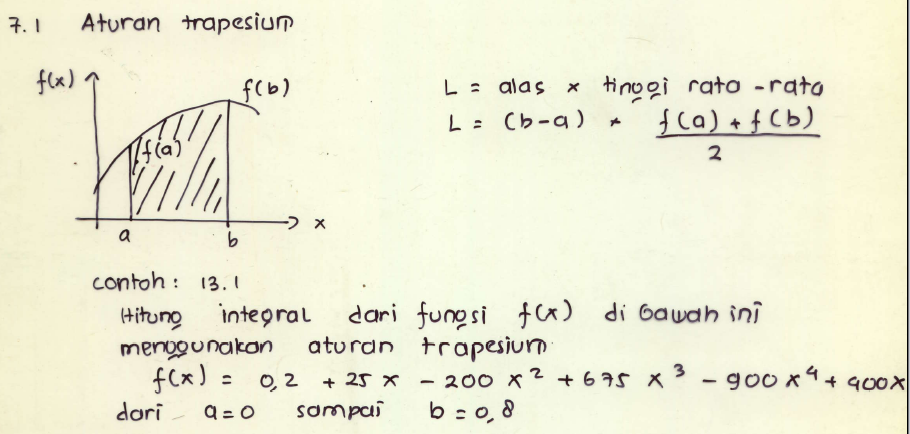 7.1 Aturan trapesium
f(x)
f(b)
f(a)
a
b
x
L = alas × tinggi rata-rata
L = (b-a) * f(a) + f(b)
2
contoh: 13.1
Hitung integral dari fungsi f(x) di bawah ini
menggunakan aturan trapesium
f(x) = 0,2 + 25 x - 200 x² + 675 x³ - 900 x⁴ + 400x
dari a=0 sampai b=0,8